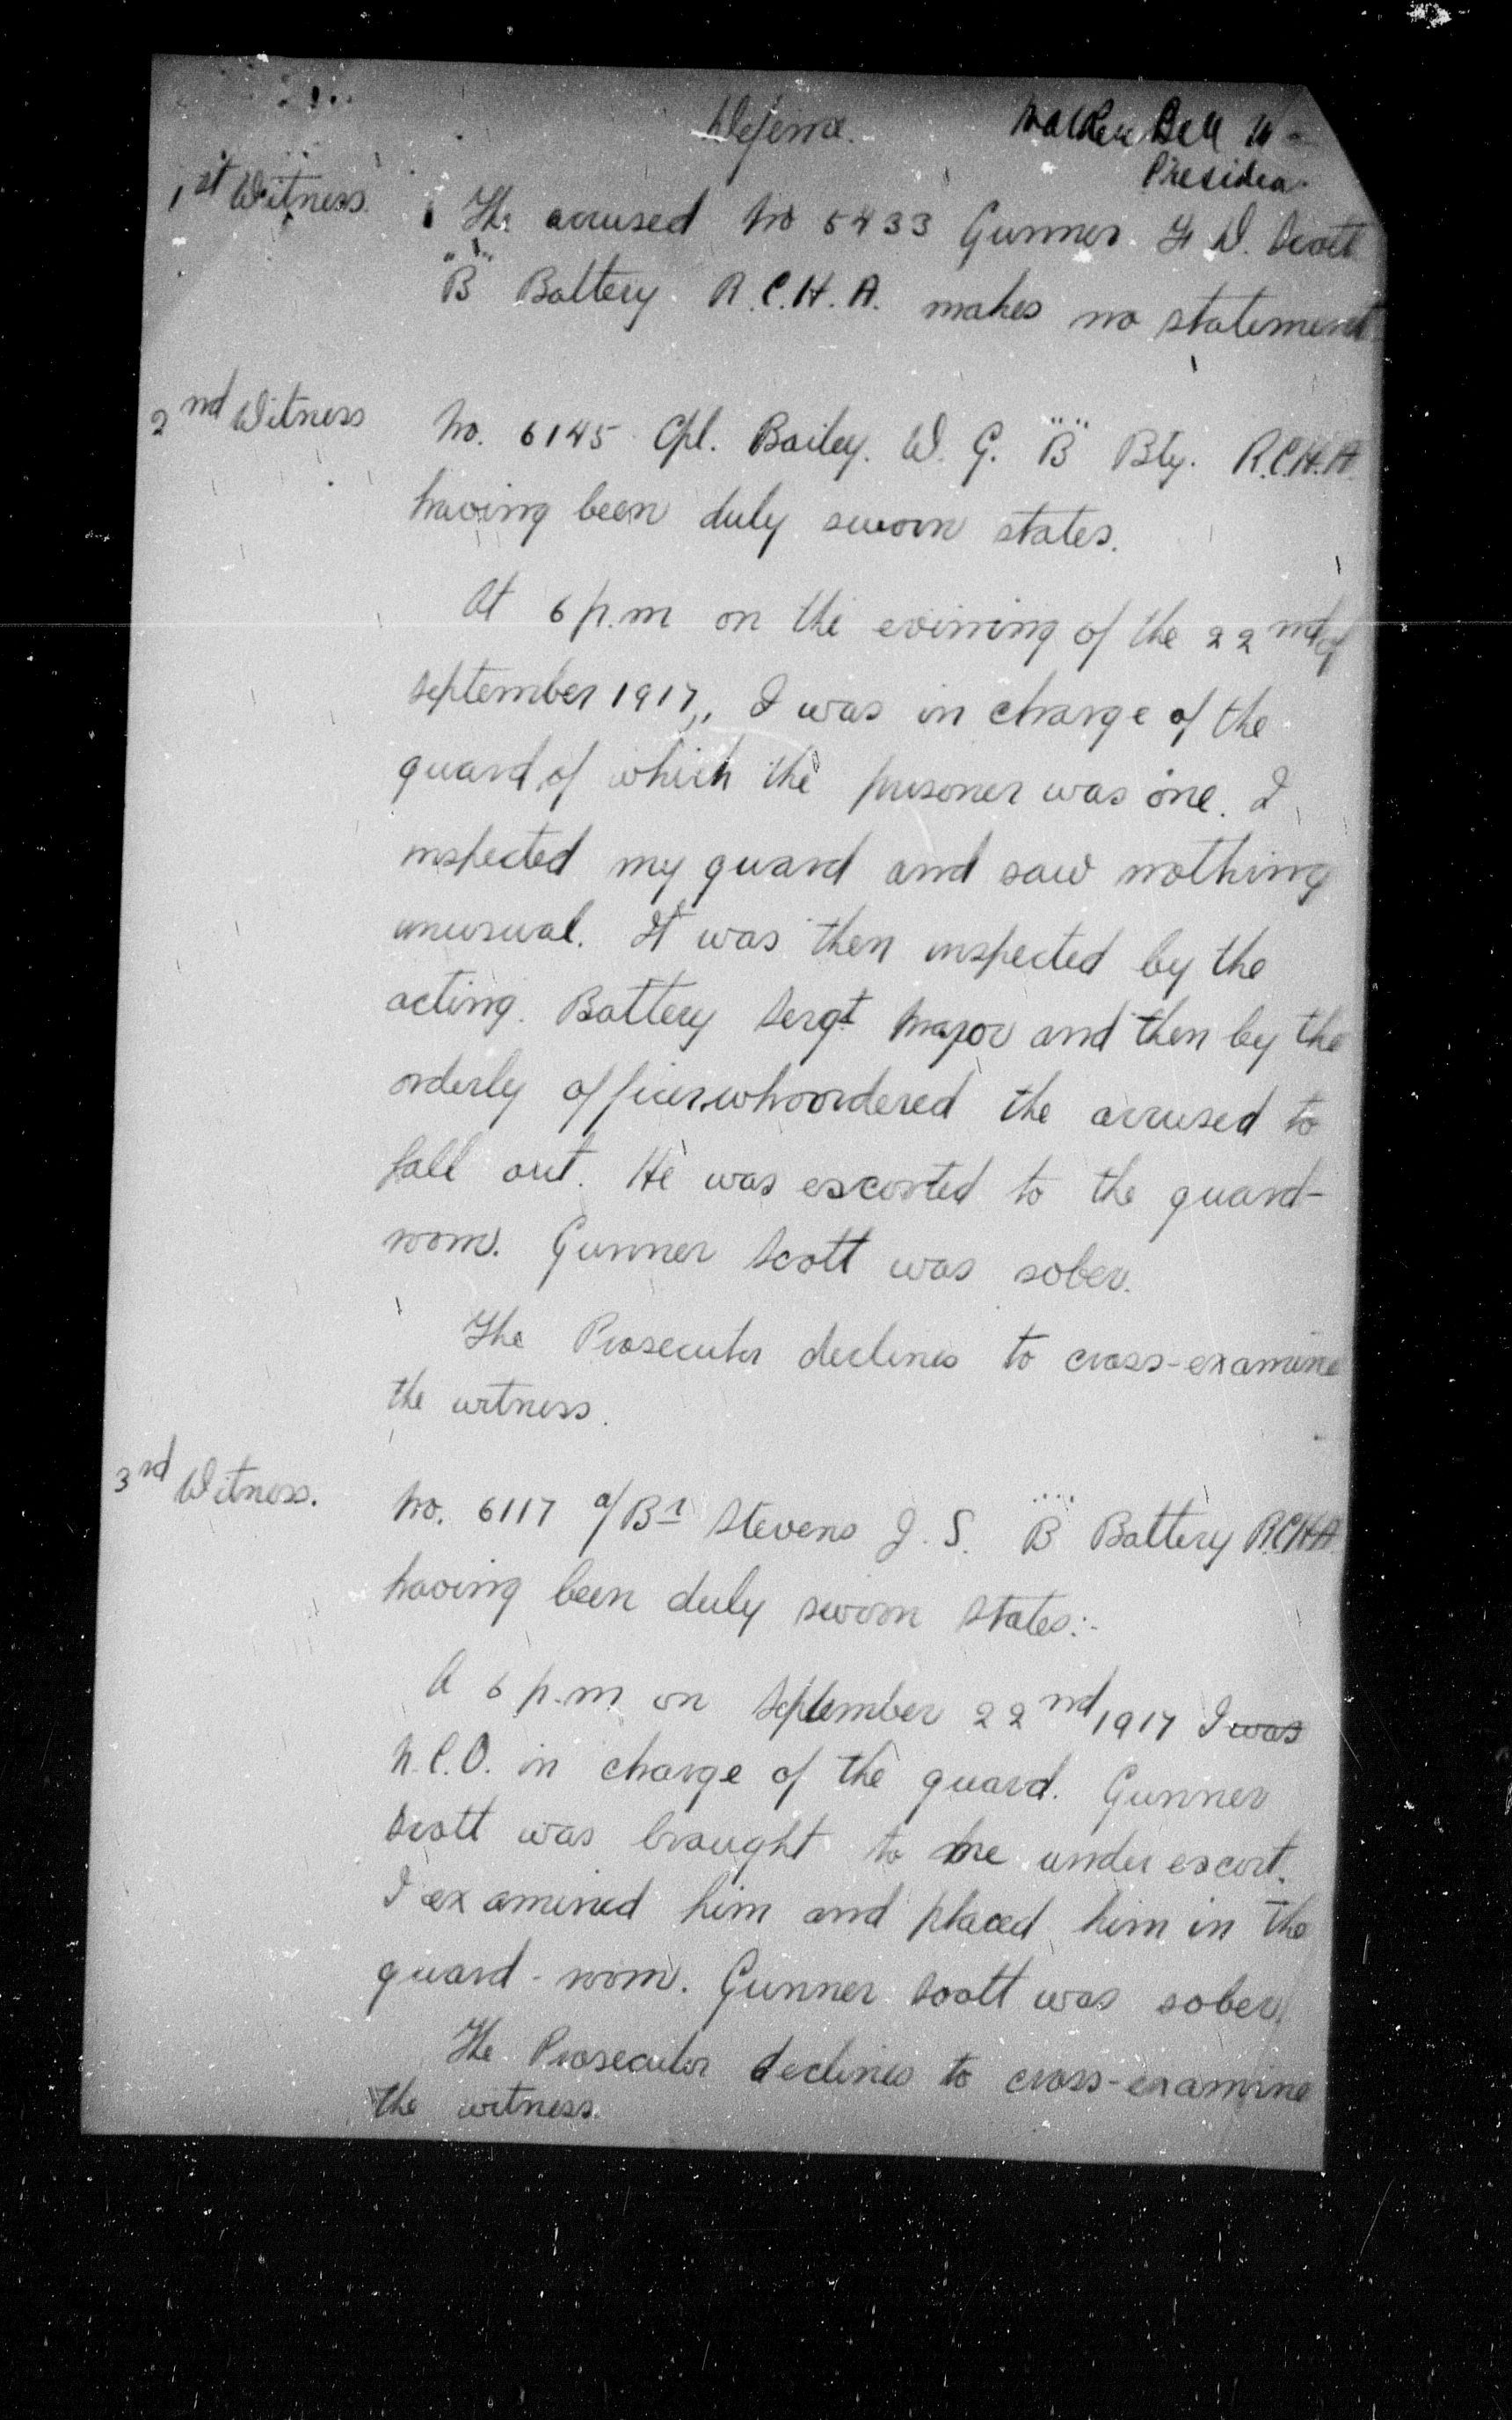 Defence.
Walker Bell
Presiden
1st Witness. The accused No 5433 Gunner D. Scott
"B" Battery R.C.H.A. makes no statement
2nd Witness No. 6145 Cpl. Bailey. W. G. "B" Bty. R.C.H.A.
having been duly sworn states.
At 6 p.m on the evining of the 22nd of
September 1917,, I was in charge of the
guard, of which the prisoner was one. I
inspected my guard and saw nothing
unusual. It was then inspected by the
acting. Battery Sergt Major and then by the
orderly officer, who ordered the accused to
fall out. He was escorted to the guard-
room. Gunner Scott was sober.
The Prosecutor declines to cross-examine
the witness.
3rd Witness. No. 6117 a/Br Stevens J. S. "B" Battery R.C.H.A.
having been duly sworn states:-
A 6 p.m on September 22nd 1917 I was
N.C.O. in charge of the guard. Gunner
Scott was brought to me under escort.
I examined him and placed him in the
guard-room. Gunner Scott was sober.
The Prosecutor declines to cross-examine
the witness.